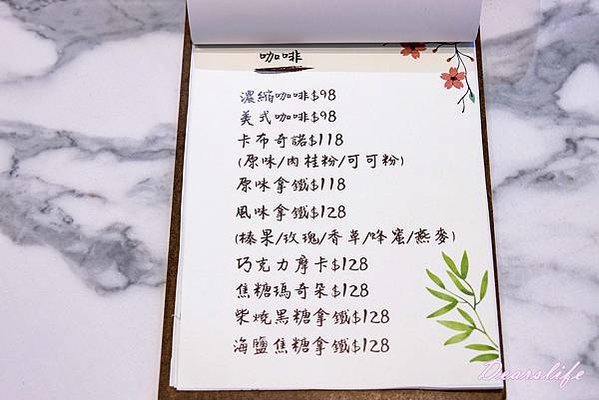 咖啡
濃縮咖啡$98
美式咖啡$98
卡布奇諾$118
(原味/肉桂粉/可可粉)
原味拿鐵$118
風味拿鐵$128
(榛果/玫瑰/香草/蜂蜜/燕麥)
巧克力摩卡$128
焦糖瑪奇朵$128
柴燒黑糖拿鐵$128
海鹽焦糖拿鐵$128
Dearslife